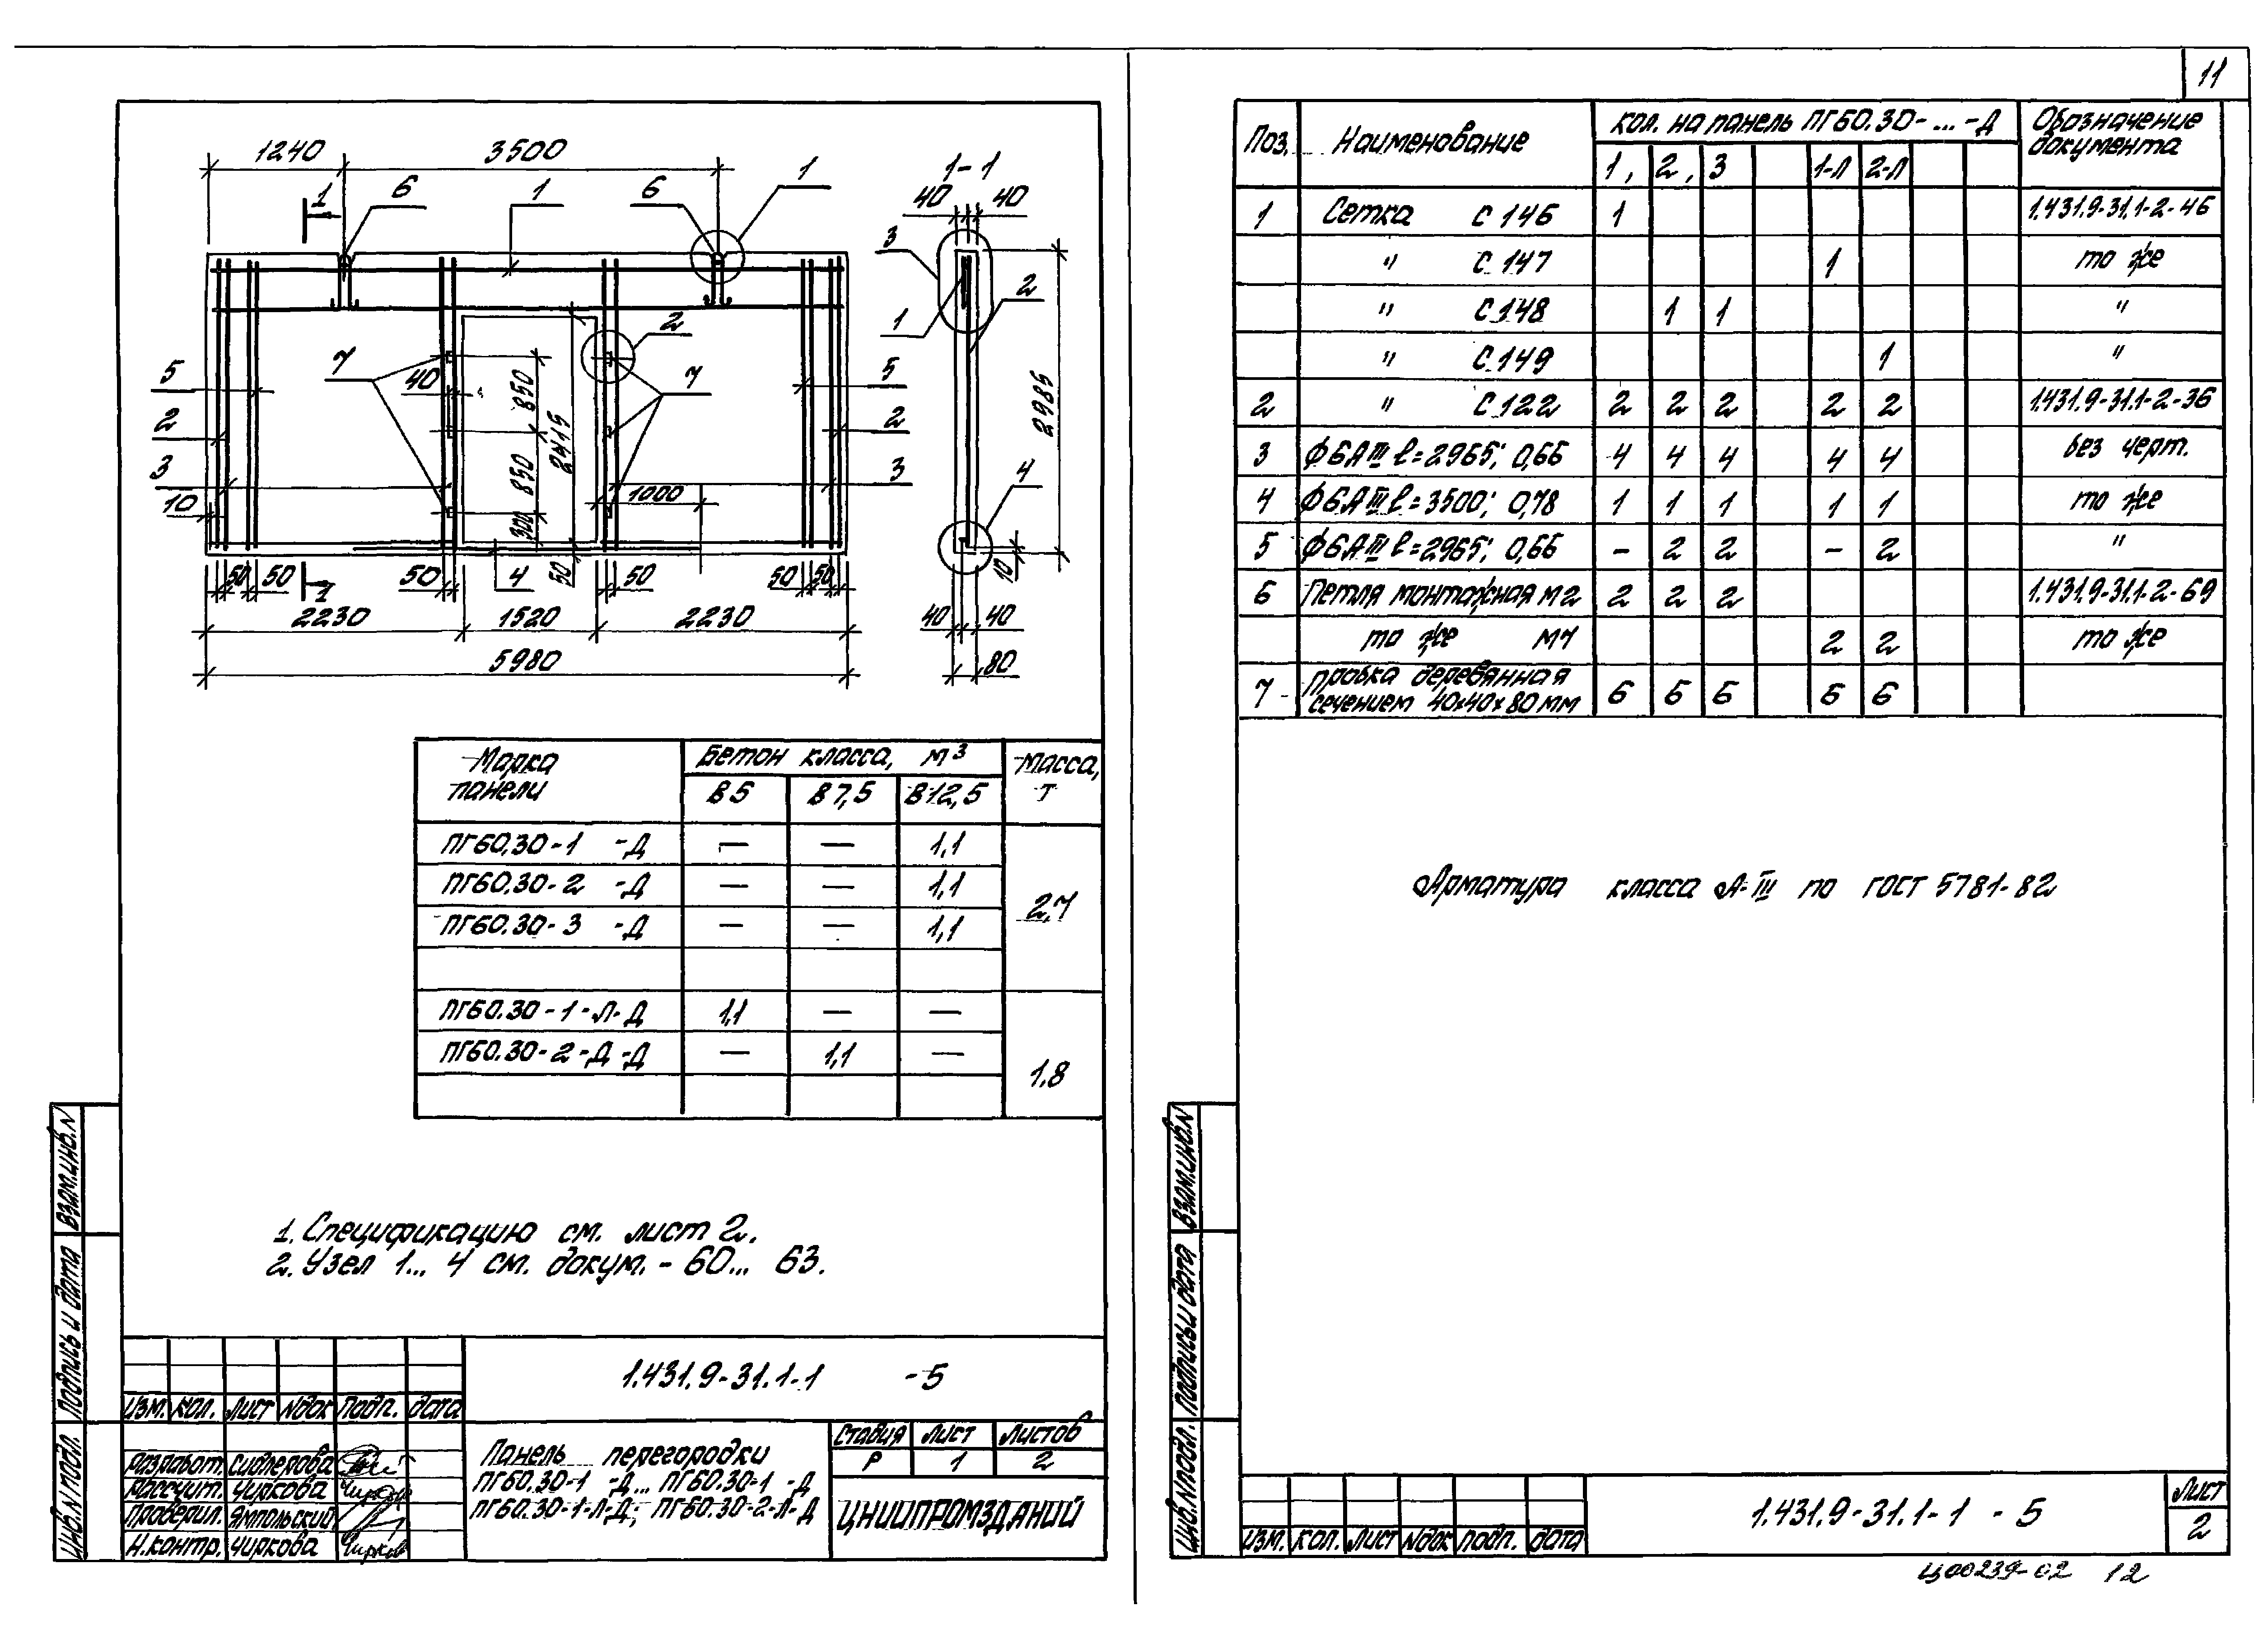 11
1240 3500
1 6 1 6 1
1-1
40 40
3
2
1
2985
4
10
40 40
80
2
7 7
5 5
40 850 2415
2 2
3 850 3
10 300 1000
50 50 50 4 50 50 50 50
1
2230 1520 2230
5980
Марка панели Бетон класса, м³ Масса, т
В5 В7,5 В12,5
ПГ60.30-1 -Д — — 1,1
ПГ60.30-2 -Д — — 1,1 2,7
ПГ60.30-3 -Д — — 1,1
ПГ60.30-1-Л-Д 1,1 — —
ПГ60.30-2-Д-Д — 1,1 —
1,8
1. Спецификацию см. лист 2.
2. Узел 1... 4 см. докум. - 60... 63.
Взам.инв.N
Подпись и дата
Инв.N подл.
1.431.9-31.1-1 -5
Изм. Кол. Лист Nдок Подп. Дата
Разработ.
Рассчит. Чиркова
Проверил. Ямпольский
Н.контр. Чиркова
Панель перегородки
ПГ60.30-1 -Д... ПГ60.30-1 -Д
ПГ60.30-1-Л-Д; ПГ60.30-2-Л-Д
Стадия Лист Листов
Р 1 2
ЦНИИПРОМЗДАНИЙ
Поз. Наименование Кол. на панель ПГ60.30-...-Д Обозначение документа
1, 2, 3 1-Л 2-Л
1 Сетка С 146 1 1.431.9-31.1-2-46
" С 147 1 то же
" С 148 1 1 "
" С 149 1 "
2 " С 122 2 2 2 2 2 1.431.9-31.1-2-36
3 Ф6АIII ℓ=2965; 0,66 4 4 4 4 4 без черт.
4 Ф6АIII ℓ=3500; 0,78 1 1 1 1 1 то же
5 Ф6АIII ℓ=2965; 0,66 - 2 2 - 2 "
6 Петля монтажная М2 2 2 2 1.431.9-31.1-2-69
то же М1 2 2 то же
7 Пробка деревянная сечением 40х40х80мм 6 6 6 6 6
Арматура класса А-III по ГОСТ 5781-82
Взам.инв.N
Подпись и дата
Инв.N подл.
Изм. Кол. Лист Nдок Подп. Дата
1.431.9-31.1-1 -5
Лист
2
Ц00239-02 12